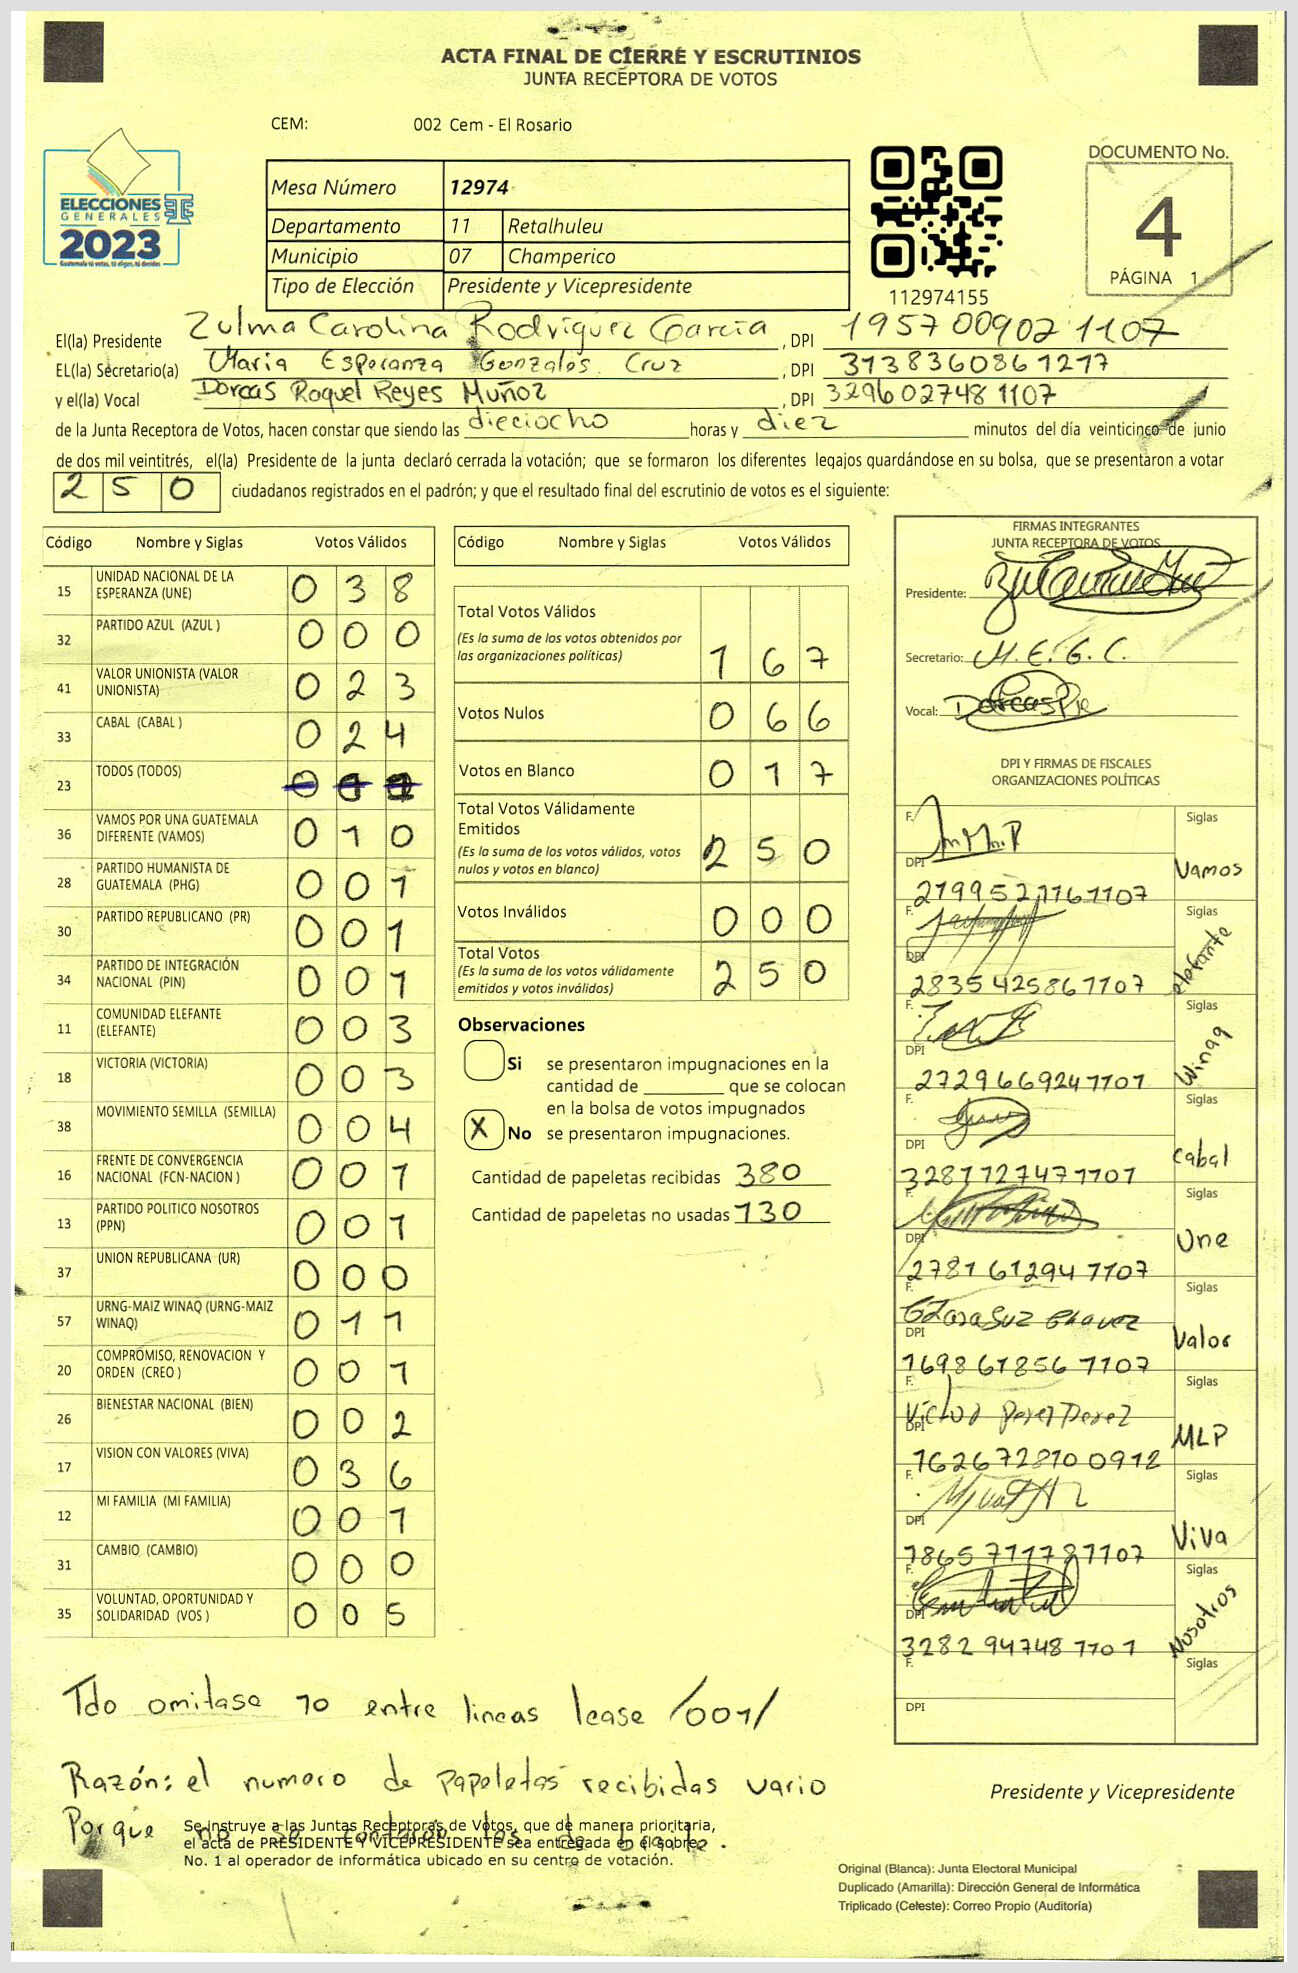 ACTA FINAL DE CIERRE Y ESCRUTINIOS
JUNTA RECEPTORA DE VOTOS
CEM: 002 Cem - El Rosario
ELECCIONES
GENERALES
2023
Guatemala tú votas, tú eliges, tú decides
Mesa Número 12974
Departamento 11 Retalhuleu
Municipio 07 Champerico
Tipo de Elección Presidente y Vicepresidente
112974155
DOCUMENTO No.
4
PÁGINA 1
El(la) Presidente Zulma Carolina Rodríguez García, DPI 1957 00902 1107
EL(la) Secretario(a) Maria Esperanza Gonzalos Cruz, DPI 3138360861217
y el(la) Vocal Dorcas Raquel Reyes Muñoz, DPI 3296027481107
de la Junta Receptora de Votos, hacen constar que siendo las dieciocho horas y diez minutos del día veinticinco de junio
de dos mil veintitrés, el(la) Presidente de la junta declaró cerrada la votación; que se formaron los diferentes legajos guardándose en su bolsa, que se presentaron a votar
250 ciudadanos registrados en el padrón; y que el resultado final del escrutinio de votos es el siguiente:
Código Nombre y Siglas Votos Válidos
15 UNIDAD NACIONAL DE LA ESPERANZA (UNE) 0 3 8
32 PARTIDO AZUL (AZUL ) 0 0 0
41 VALOR UNIONISTA (VALOR UNIONISTA) 0 2 3
33 CABAL (CABAL ) 0 2 4
23 TODOS (TODOS)
36 VAMOS POR UNA GUATEMALA DIFERENTE (VAMOS) 0 1 0
28 PARTIDO HUMANISTA DE GUATEMALA (PHG) 0 0 1
30 PARTIDO REPUBLICANO (PR) 0 0 1
34 PARTIDO DE INTEGRACIÓN NACIONAL (PIN) 0 0 1
11 COMUNIDAD ELEFANTE (ELEFANTE) 0 0 3
18 VICTORIA (VICTORIA) 0 0 3
38 MOVIMIENTO SEMILLA (SEMILLA) 0 0 4
16 FRENTE DE CONVERGENCIA NACIONAL (FCN-NACION ) 0 0 1
13 PARTIDO POLITICO NOSOTROS (PPN) 0 0 1
37 UNION REPUBLICANA (UR) 0 0 0
57 URNG-MAIZ WINAQ (URNG-MAIZ WINAQ) 0 1 1
20 COMPROMISO, RENOVACION Y ORDEN (CREO ) 0 0 1
26 BIENESTAR NACIONAL (BIEN) 0 0 2
17 VISION CON VALORES (VIVA) 0 3 6
12 MI FAMILIA (MI FAMILIA) 0 0 1
31 CAMBIO (CAMBIO) 0 0 0
35 VOLUNTAD, OPORTUNIDAD Y SOLIDARIDAD (VOS ) 0 0 5
Código Nombre y Siglas Votos Válidos
Total Votos Válidos
(Es la suma de los votos obtenidos por
las organizaciones políticas) 1 6 7
Votos Nulos 0 6 6
Votos en Blanco 0 1 7
Total Votos Válidamente
Emitidos
(Es la suma de los votos válidos, votos
nulos y votos en blanco) 2 5 0
Votos Inválidos 0 0 0
Total Votos
(Es la suma de los votos válidamente
emitidos y votos inválidos) 2 5 0
Observaciones
Si se presentaron impugnaciones en la
cantidad de ________ que se colocan
en la bolsa de votos impugnados
X No se presentaron impugnaciones.
Cantidad de papeletas recibidas 380
Cantidad de papeletas no usadas 130
FIRMAS INTEGRANTES
JUNTA RECEPTORA DE VOTOS
Presidente:
Secretario: M. E. G. C.
Vocal:
DPI Y FIRMAS DE FISCALES
ORGANIZACIONES POLÍTICAS
F. Siglas
DPI 2199527761107 Vamos
F. Siglas
DPI 2835425867107 elefante
F. Siglas
DPI 2729669247101 Winaq
F. Siglas
DPI 3281727471101 Cabal
F. Siglas
DPI 2781612947107 Une
F. Siglas
DPI 1698618567107 Valor
F. Victor Perez Perez Siglas
DPI 1626728700912 MLP
F. Siglas
DPI 1865711787107 Viva
F. Siglas
DPI 3282947487101 Nosotros
F. Siglas
DPI
Tdo omitase 10 entre lineas lease /001/
Razón: el numero de papeletas recibidas vario
Porque no se contaron las de
Se instruye a las Juntas Receptoras de Votos, que de manera prioritaria,
el acta de PRESIDENTE Y VICEPRESIDENTE sea entregada en el sobre
No. 1 al operador de informática ubicado en su centro de votación.
Presidente y Vicepresidente
Original (Blanca): Junta Electoral Municipal
Duplicado (Amarilla): Dirección General de Informática
Triplicado (Celeste): Correo Propio (Auditoría)